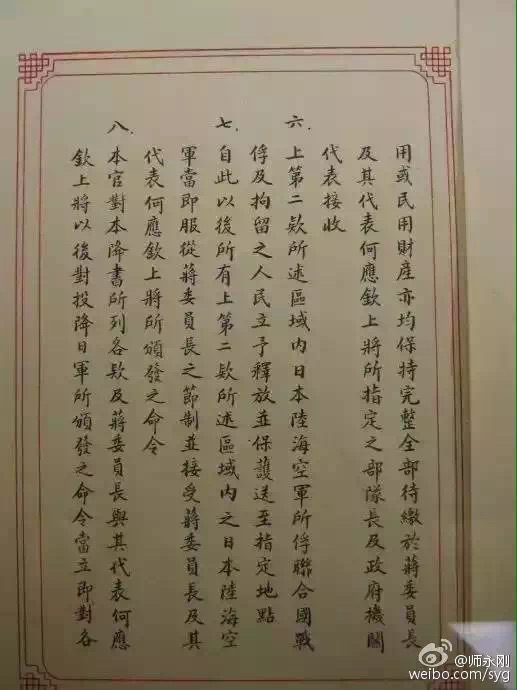 用或民用財產亦均保持完整全部待繳於蔣委員長
及其代表何應欽上將所指定之部隊長及政府機關
代表接收
六.上第二欵所述區域內日本陸海空軍所俘聯合國戰
俘及拘留之人民立予釋放並保護送至指定地點
七.自此以後所有上第二欵所述區域內之日本陸海空
軍當即服從蔣委員長之節制並接受蔣委員長及其
代表何應欽上將所頒發之命令
八.本官對本降書所列各欵及蔣委員長與其代表何應
欽上將以後對投降日軍所頒發之命令當立即對各
@师永刚
weibo.com/syg